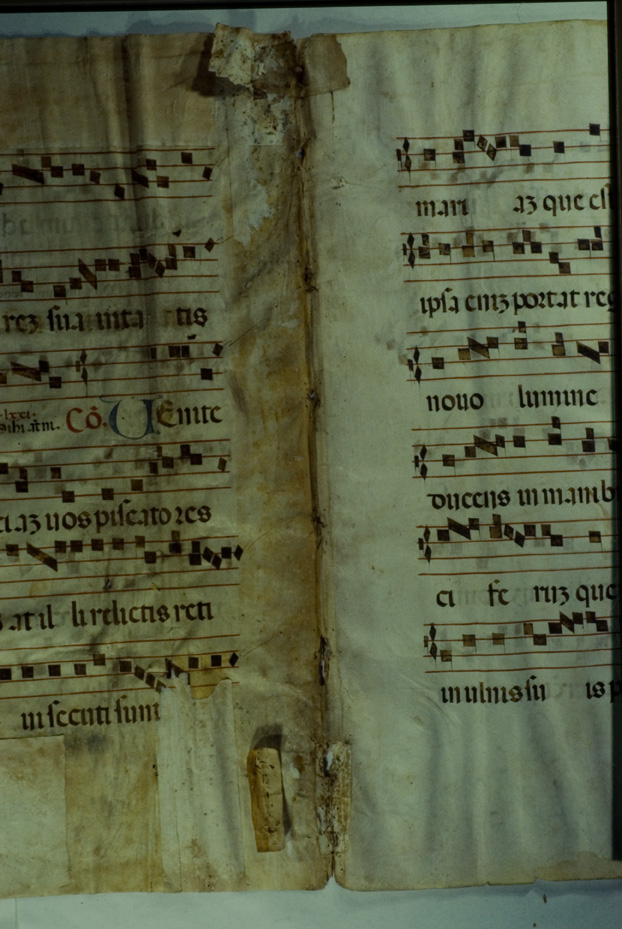 rez sua uita tis
Cō. UEnite
uos piscatores
at il li relictis reti
in secuti sunt
mari az que est
ipsa eniz portat reg
nouo lumine
ducens in manib
ci fe ruz que
in ulnis su is p